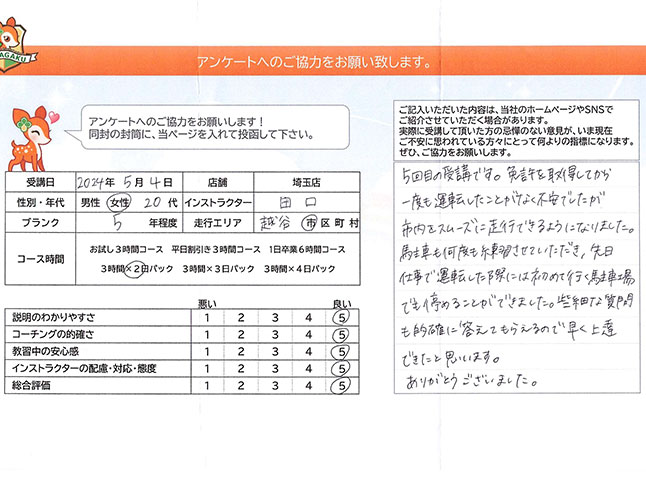 AGAKU
アンケートへのご協力をお願い致します。
アンケートへのご協力をお願いします!
同封の封筒に、当ページを入れて投函して下さい。
受講日 2024年 5月 4日 店舗 埼玉店
性別・年代 男性 女性 20 代 インストラクター 田口
ブランク 5 年程度 走行エリア 越谷 市区町村
コース時間
お試し3時間コース 平日割引き3時間コース 1日卒業6時間コース
3時間×2日パック 3時間×3日パック 3時間×4日パック
悪い 良い
説明のわかりやすさ 1 2 3 4 5
コーチングの的確さ 1 2 3 4 5
教習中の安心感 1 2 3 4 5
インストラクターの配慮・対応・態度 1 2 3 4 5
総合評価 1 2 3 4 5
ご記入いただいた内容は、当社のホームページやSNSで
ご紹介させていただく場合があります。
実際に受講して頂いた方の忌憚のない意見が、いま現在
ご不安に思われている方々にとって何よりの指標になります。
ぜひ、ご協力をお願いします。
5回目の受講です。免許を取得してから
一度も運転したことがなく不安でしたが
市内をスムーズに走行できるようになりました。
駐車も何度も練習させていただき、先日
仕事で運転した際には初めて行く駐車場
でも停めることができました。些細な質問
も的確に答えてもらえるので早く上達
できたと思います。
ありがとうございました。